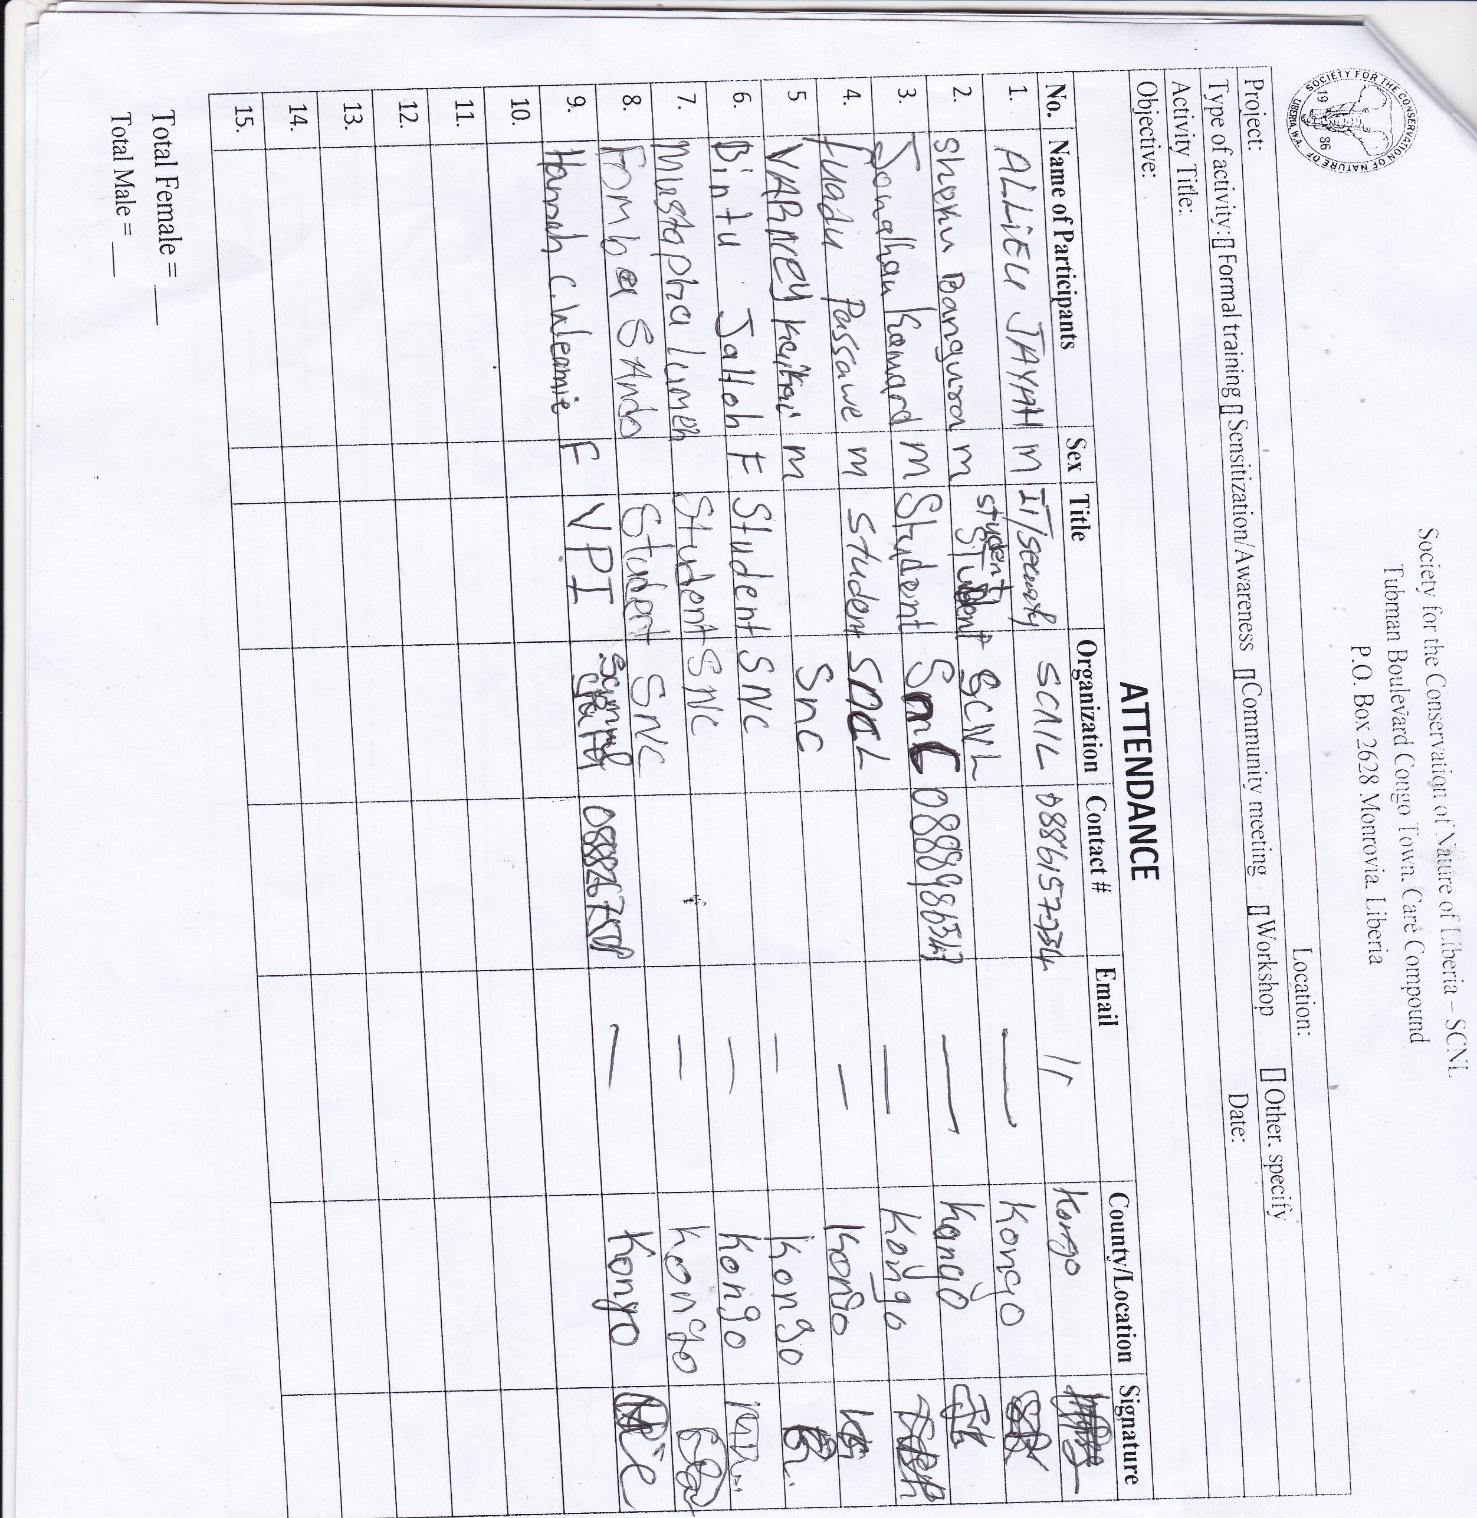 SOCIETY FOR THE CONSERVATION OF NATURE OF LIBERIA W.A.
19 86
Society for the Conservation of Nature of Liberia – SCNL
Tubman Boulevard Congo Town, Care Compound
P.O. Box 2628 Monrovia, Liberia
Project: Location:
Type of activity: Formal training Sensitization/Awareness Community meeting Workshop Other, specify
Activity Title: Date:
Objective:
ATTENDANCE
No. Name of Participants Sex Title Organization Contact # Email County/Location Signature
1. ALLIEU JAYAH M IT/security SCNL Kongo
2. Sheku Bangura M student student SCNL — Kongo
3. Jonathan Kamara M Student 0888986347 — Kongo
4. Fuadu Passawe M student — Kongo
5 VARNEY Kaikai M Snc — Kongo
6. Bintu Jalloh F Student SNC — Kongo
7. Mustapha lumeh Student SNC — Kongo
8. Fomba SAndo Student SNC — Kongo
9. Hannah C. F VPI — Kongo
10.
11.
12.
13.
14.
15.
Total Female = __
Total Male = __